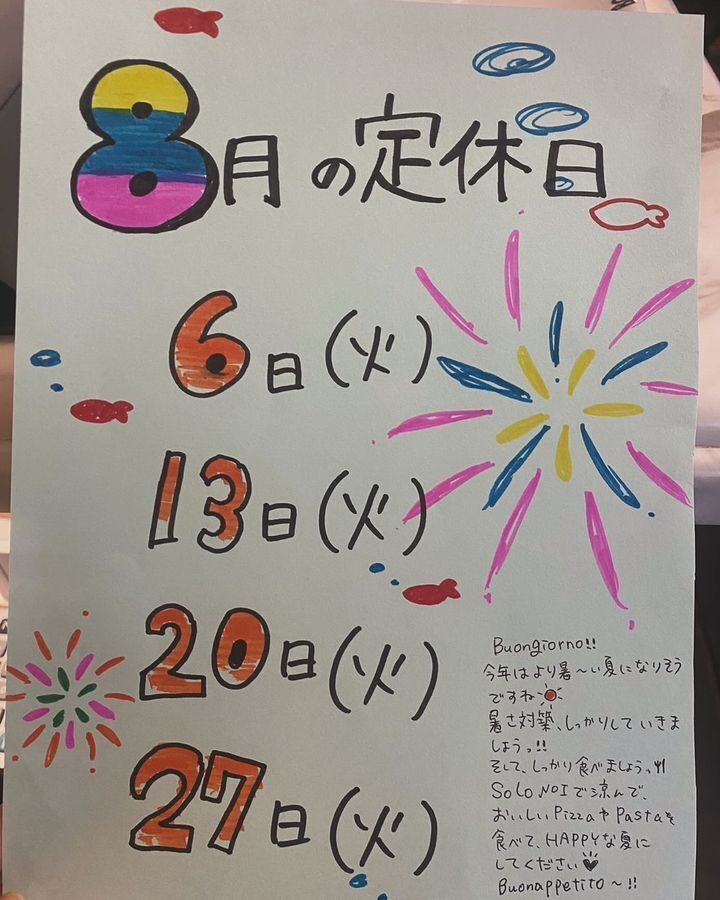 8月の定休日
6日(火)
13日(火)
20日(火)
27日(火)
Buongiorno!!
今年はより暑〜い夏になりそう
ですね
暑さ対築、しっかりしていきま
しょうっ!!
そして、しっかり食べましょうっ
SOLO NOIで涼んで、
おいしいPizzaやPastaを
食べて、HAPPYな夏に
してください
Buonappetito〜!!